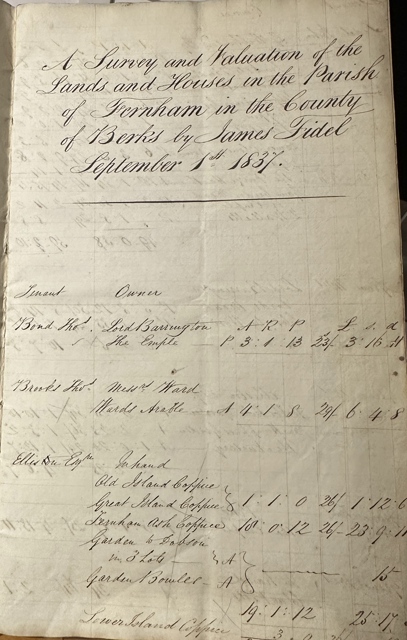 A Survey and Valuation of the
Lands and Houses in the Parish
of Fernham in the County
of Berks by James Fidel
September 1st 1837.
Tenant Owner
Bond Thos. Lord Barrington A R P £ s. d
The Emple P 3 : 1 : 13 23/ 3 : 16 : 4
Brooks Thos. Messrs Ward
Wards Arable A 4 : 1 : 8 29/ 6 : 4 : 8
Elliston Esqre In hand
Old Island Coppice
Great Island Coppice 1 : 1 : 0 26/ 1 : 12 : 6
Fernham Ash Coppice 18 : 0 : 12 26/ 23 : 9 : 11
Garden & Dobson
in 3 Lots A
Garden Bowles A 15
19 : 1 : 12 25 : 17
Lower Island Coppice